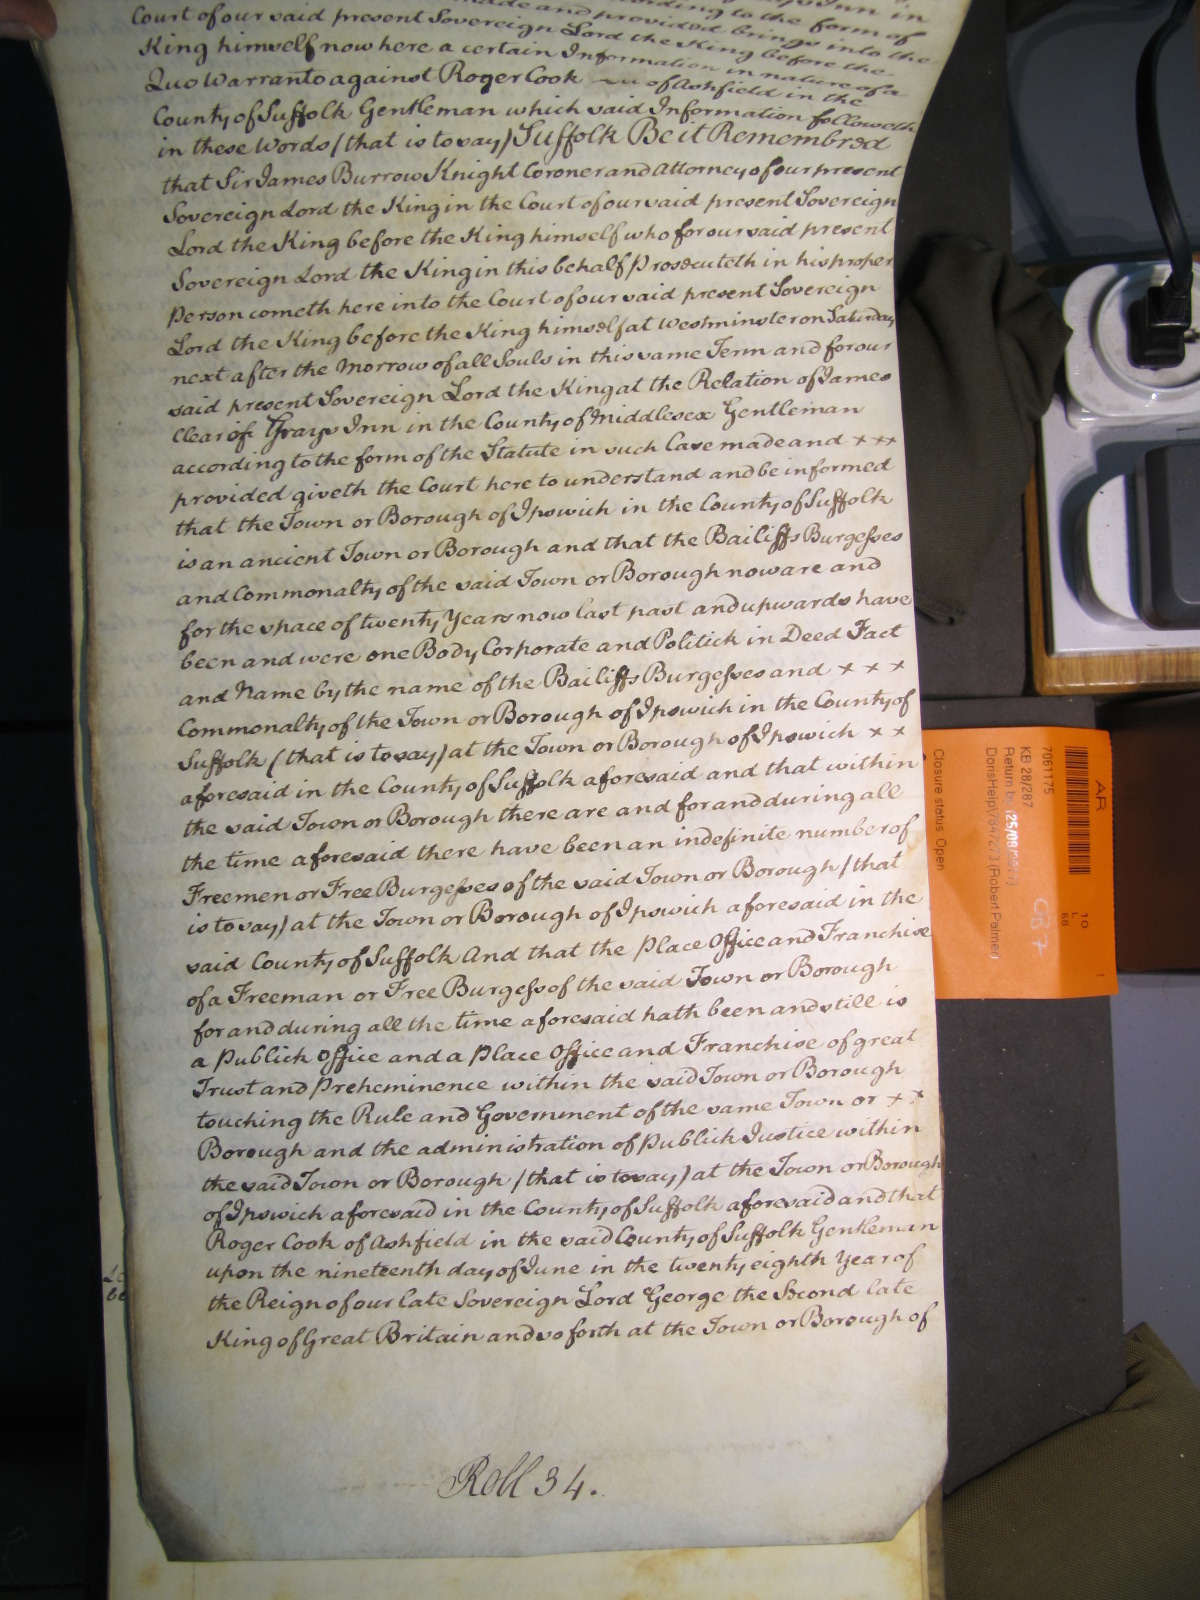 Inn in
according to the form of
made and provided brings into the
Court of our said present Sovereign Lord the King before the
King himself now here a certain Information in nature of a
Quo Warranto against Roger Cook of Ashfield in the
County of Suffolk Gentleman which said Information followeth
in these Words (that is to say) Suffolk Be it Remembred
that Sir James Burrow Knight Coroner and Attorney of our present
Sovereign Lord the King in the Court of our said present Sovereign
Lord the King before the King himself who for our said present
Sovereign Lord the King in this behalf Prosecuteth in his proper
Person cometh here into the Court of our said present Sovereign
Lord the King before the King himself at Westminster on Saturday
next after the Morrow of all Souls in this same Term and for our
said present Sovereign Lord the King at the Relation of James
Clear of Grays Inn in the County of Middlesex Gentleman
according to the form of the Statute in such Case made and × × ×
provided giveth the Court here to understand and be informed
that the Town or Borough of Ipswich in the County of Suffolk
is an ancient Town or Borough and that the Bailiffs Burgesses
and Commonalty of the said Town or Borough now are and
for the space of twenty Years now last past and upwards have
been and were one Body Corporate and Politick in Deed Fact
and Name by the name of the Bailiffs Burgesses and × × ×
Commonalty of the Town or Borough of Ipswich in the County of
Suffolk (that is to say) at the Town or Borough of Ipswich × ×
aforesaid in the County of Suffolk aforesaid and that within
the said Town or Borough there are and for and during all
the time aforesaid there have been an indefinite number of
Freemen or Free Burgesses of the said Town or Borough (that
is to say) at the Town or Borough of Ipswich aforesaid in the
said County of Suffolk And that the Place Office and Franchise
of a Freeman or Free Burgess of the said Town or Borough
for and during all the time aforesaid hath been and still is
a Publick Office and a Place Office and Franchise of great
Trust and Preheminence within the said Town or Borough
touching the Rule and Government of the same Town or × ×
Borough and the administration of Publick Justice within
the said Town or Borough (that is to say) at the Town or Borough
of Ipswich aforesaid in the County of Suffolk aforesaid and that
Roger Cook of Ashfield in the said County of Suffolk Gentleman
upon the nineteenth day of June in the twenty eighth Year of
the Reign of our late Sovereign Lord George the Second late
King of Great Britain and so forth at the Town or Borough of
Roll 34.
AR
7061175
KB 28/287
Return by (25/08/
(Robert Palmer)
Closure status: Open
10
L
68